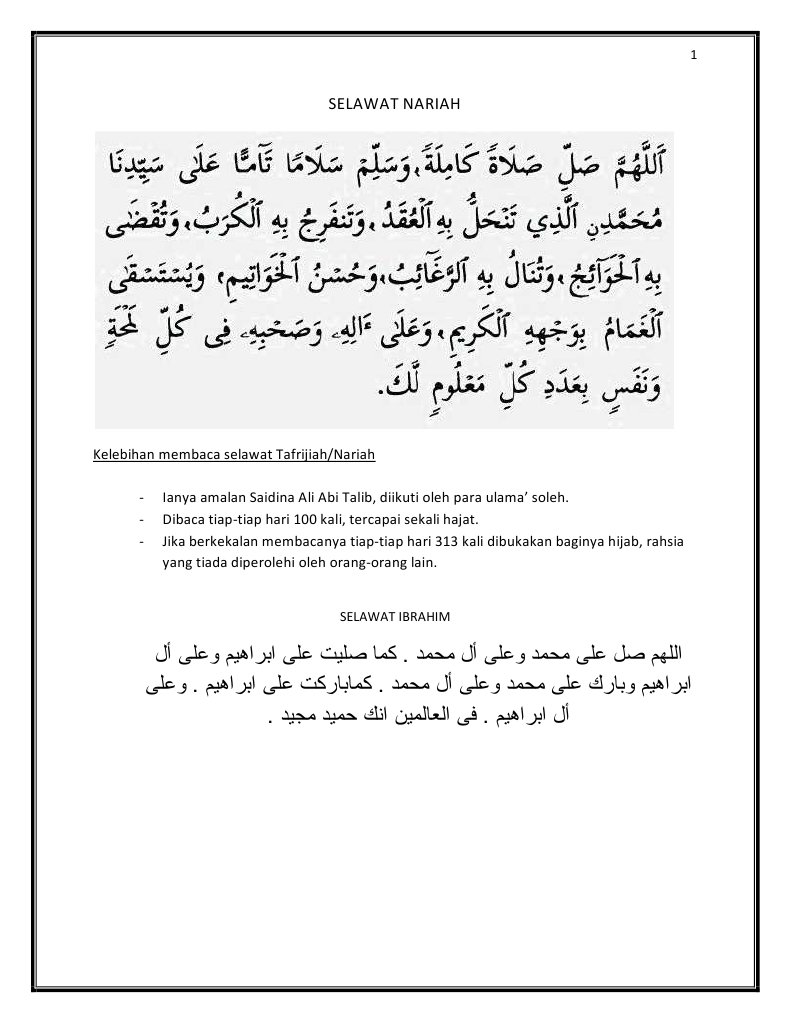 1
SELAWAT NARIAH
اَللَّهُمَّ صَلِّ صَلَاةً كَامِلَةً، وَسَلِّمْ سَلَامًا تَآمًّا عَلَى سَيِّدِنَا
مُحَمَّدِنِ الَّذِي تَنْحَلُّ بِهِ الْعُقَدُ، وَتَنفَرِجُ بِهِ الْكُرَبُ، وَتُقْضَى
بِهِ الْحَوَآئِجُ، وَتُنَالُ بِهِ الرَّغَآئِبُ، وَحُسْنُ الْخَوَاتِيمِ، وَيُسْتَسْقَى
الْغَمَامُ بِوَجْهِهِ الْكَرِيمِ، وَعَلَى ءَالِهِ وَصَحْبِهِ فِى كُلِّ لَمْحَةٍ
وَنَفَسٍ بِعَدَدِ كُلِّ مَعْلُومٍ لَّكَ.
Kelebihan membaca selawat Tafrijiah/Nariah
- Ianya amalan Saidina Ali Abi Talib, diikuti oleh para ulama’ soleh.
- Dibaca tiap-tiap hari 100 kali, tercapai sekali hajat.
- Jika berkekalan membacanya tiap-tiap hari 313 kali dibukakan baginya hijab, rahsia
yang tiada diperolehi oleh orang-orang lain.
SELAWAT IBRAHIM
اللهم صل على محمد وعلى أل محمد . كما صليت على ابراهيم وعلى أل
ابراهيم وبارك على محمد وعلى أل محمد . كماباركت على ابراهيم . وعلى
أل ابراهيم . فى العالمين انك حميد مجيد .